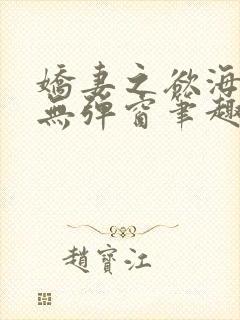 嬌妻之欲海
無彈窗筆趣
趙寶江